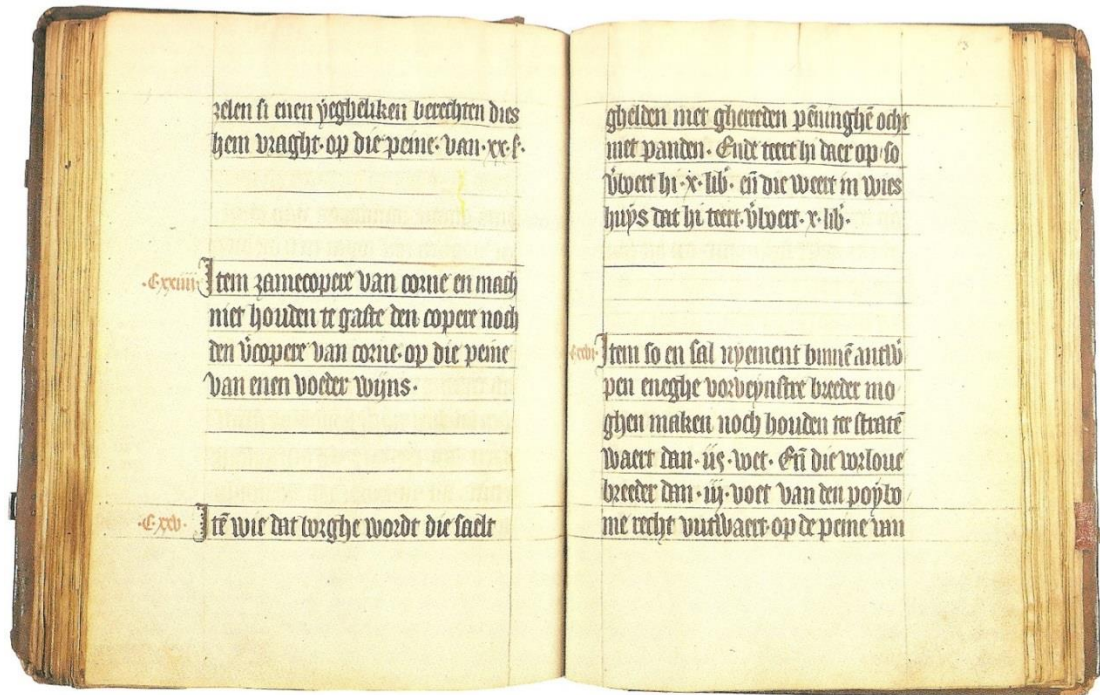 zelen si enen yegheliken berechten dies
hem vraght · op die peine · van · xx · s ·
· C xxiiii · Item zamecopere van corne en mach
niet houden te gaste den copere noch
den v̓copere van corne · op die peine
van enen voeder wijns ·
· C xxv · Itē wie dat borghe wordt die saelt
ghelden met ghereeden pēninghē ocht
met panden · Ende teert hi daer op · so
v̓boert hi · x · lib̓ · eñ die weert in wies
huys dat hi teert · v̓boert · x · lib̓ ·
Item so en sal nyement binnē antw̓
pen eneghe vorveynstre breeder mo
ghen maken noch houden ter stratē
waert dan · iiȷ · voet · Eñ die vorloue
breeder dan · iij · voet van den poylbo
me recht vutwaert · op de peine van